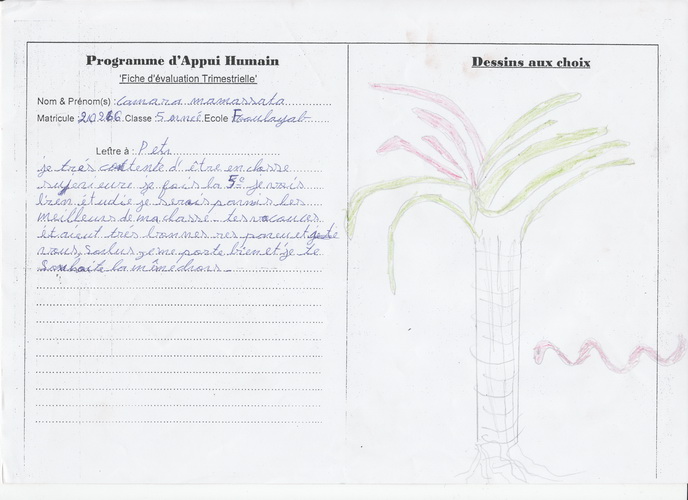 Programme d'Appui Humain
'Fiche d'évaluation Trimestrielle'
Nom & Prénom(s) : Camara mamassata
Matricule 20266 Classe : 5 année Ecole Faoulayah
Lettre à : Petr
je très contente d'être en classe
superieure je fais la 5° je vais
bien étudie je serais parmis les
meilleurs de ma classe. Les vacances
étaient très bonnes
vous, Salus, je me porte bien et je te
Souhaite la même
Dessins aux choix